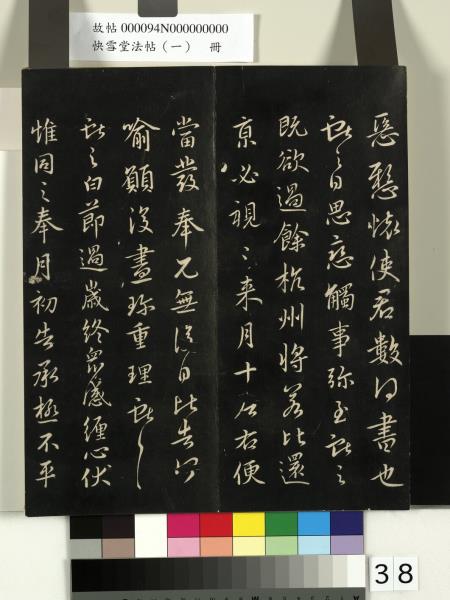 故帖 000094N000000000
快雪堂法帖（一） 冊
惡懸懷使君數得書也
獻之白思戀觸事彌至獻之
既欲過餘杭州將若比還
京必視之來月十左右便
當發奉見無復日比告何
喻願復盡珍重理獻之
獻之白節過歲終眾感纏心伏
惟同之奉月初告承極不平
38